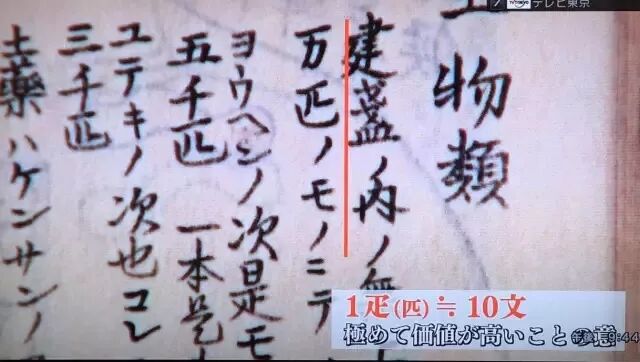 テレビ東京
土物類
建盞ノ内ノ無
万匹ノモノニテ
ヨウヘンノ次是モ
五千匹 一本是
ユテキノ次也コレ
三千匹
土薬ハケンサンノ
1疋(匹)≒10文
極めて価値が高いことの意